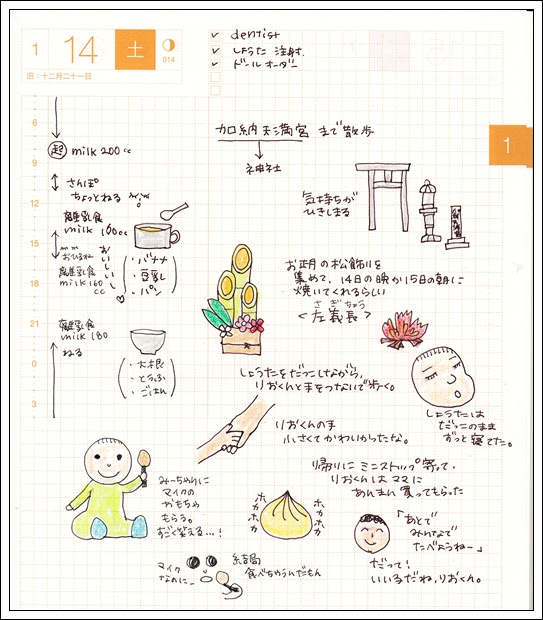 1
14
土
014
旧:十二月二十一日
✓ dentist
✓ しょうた 注射.
✓ ドールオーダー
1
6
9
12
15
18
21
0
3
起 milk 200cc
さんぽ
ちょっとねる
離乳食
milk 160cc
おひるね
おいしい
離乳食
milk 160
cc
・バナナ
・豆乳
・パン
離乳食
milk 180
ねる
・大根
・とうふ
・ごはん
加納天満宮 まで散歩
神社
気持ちが
ひきしまる
お正月の松飾りを
集めて、14日の晩か15日の朝に
焼いてくれるらしい
さぎちょう
<左義長>
しょうたをだっこしながら、
りおくんと手をつないで歩く。
しょうたは
だっこのまま
ずっと寝てた。
りおくんの手
小さくてかわいかったな。
帰りにミニストップ寄って、
りおくんはママに
あんまん買ってもらった
ホカホカ
ホカホカ
「あとで
みんなで
たべようねー」
だって!
いい子だね、りおくん。
みーちゃんに
マイクの
おもちゃ
もらう。
すごく笑える…!
マイク
なのに…
結局
食べちゃうんだもん